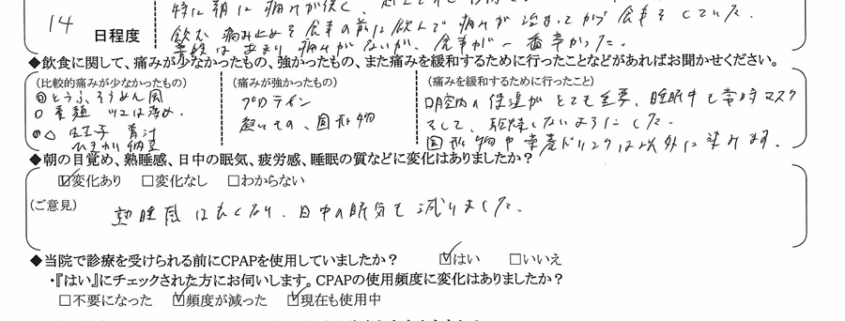 特に朝に痛みが強く、
14 日程度
飲む 痛み止めを食事の前に飲んで痛みが治まってから食事をしていた。
普段はあまり痛みがないが、食事が一番辛かった。
◆飲食に関して、痛みが少なかったもの、強かったもの、また痛みを緩和するために行ったことなどがあればお聞かせください。
(比較的痛みが少なかったもの) (痛みが強かったもの) (痛みを緩和するために行ったこと)
◎とうふ、そうめん プロテイン 口腔内の保湿がとても重要、睡眠中も常時マスク
○ 素麺 は薄め、 熱いもの、固形物 をして、乾燥しないようにした。
○△ 玉子 青汁 固形物や栄養ドリンクは以外に染みます。
ひきわり納豆
◆朝の目覚め、熟睡感、日中の眠気、疲労感、睡眠の質などに変化はありましたか?
☑変化あり □変化なし □わからない
(ご意見) 熟睡感は良くなり、日中の眠気も減りました。
◆当院で診療を受けられる前にCPAPを使用していましたか? ☑はい □いいえ
・『はい』にチェックされた方にお伺いします。CPAPの使用頻度に変化はありましたか?
□不要になった ☑頻度が減った ☑現在も使用中